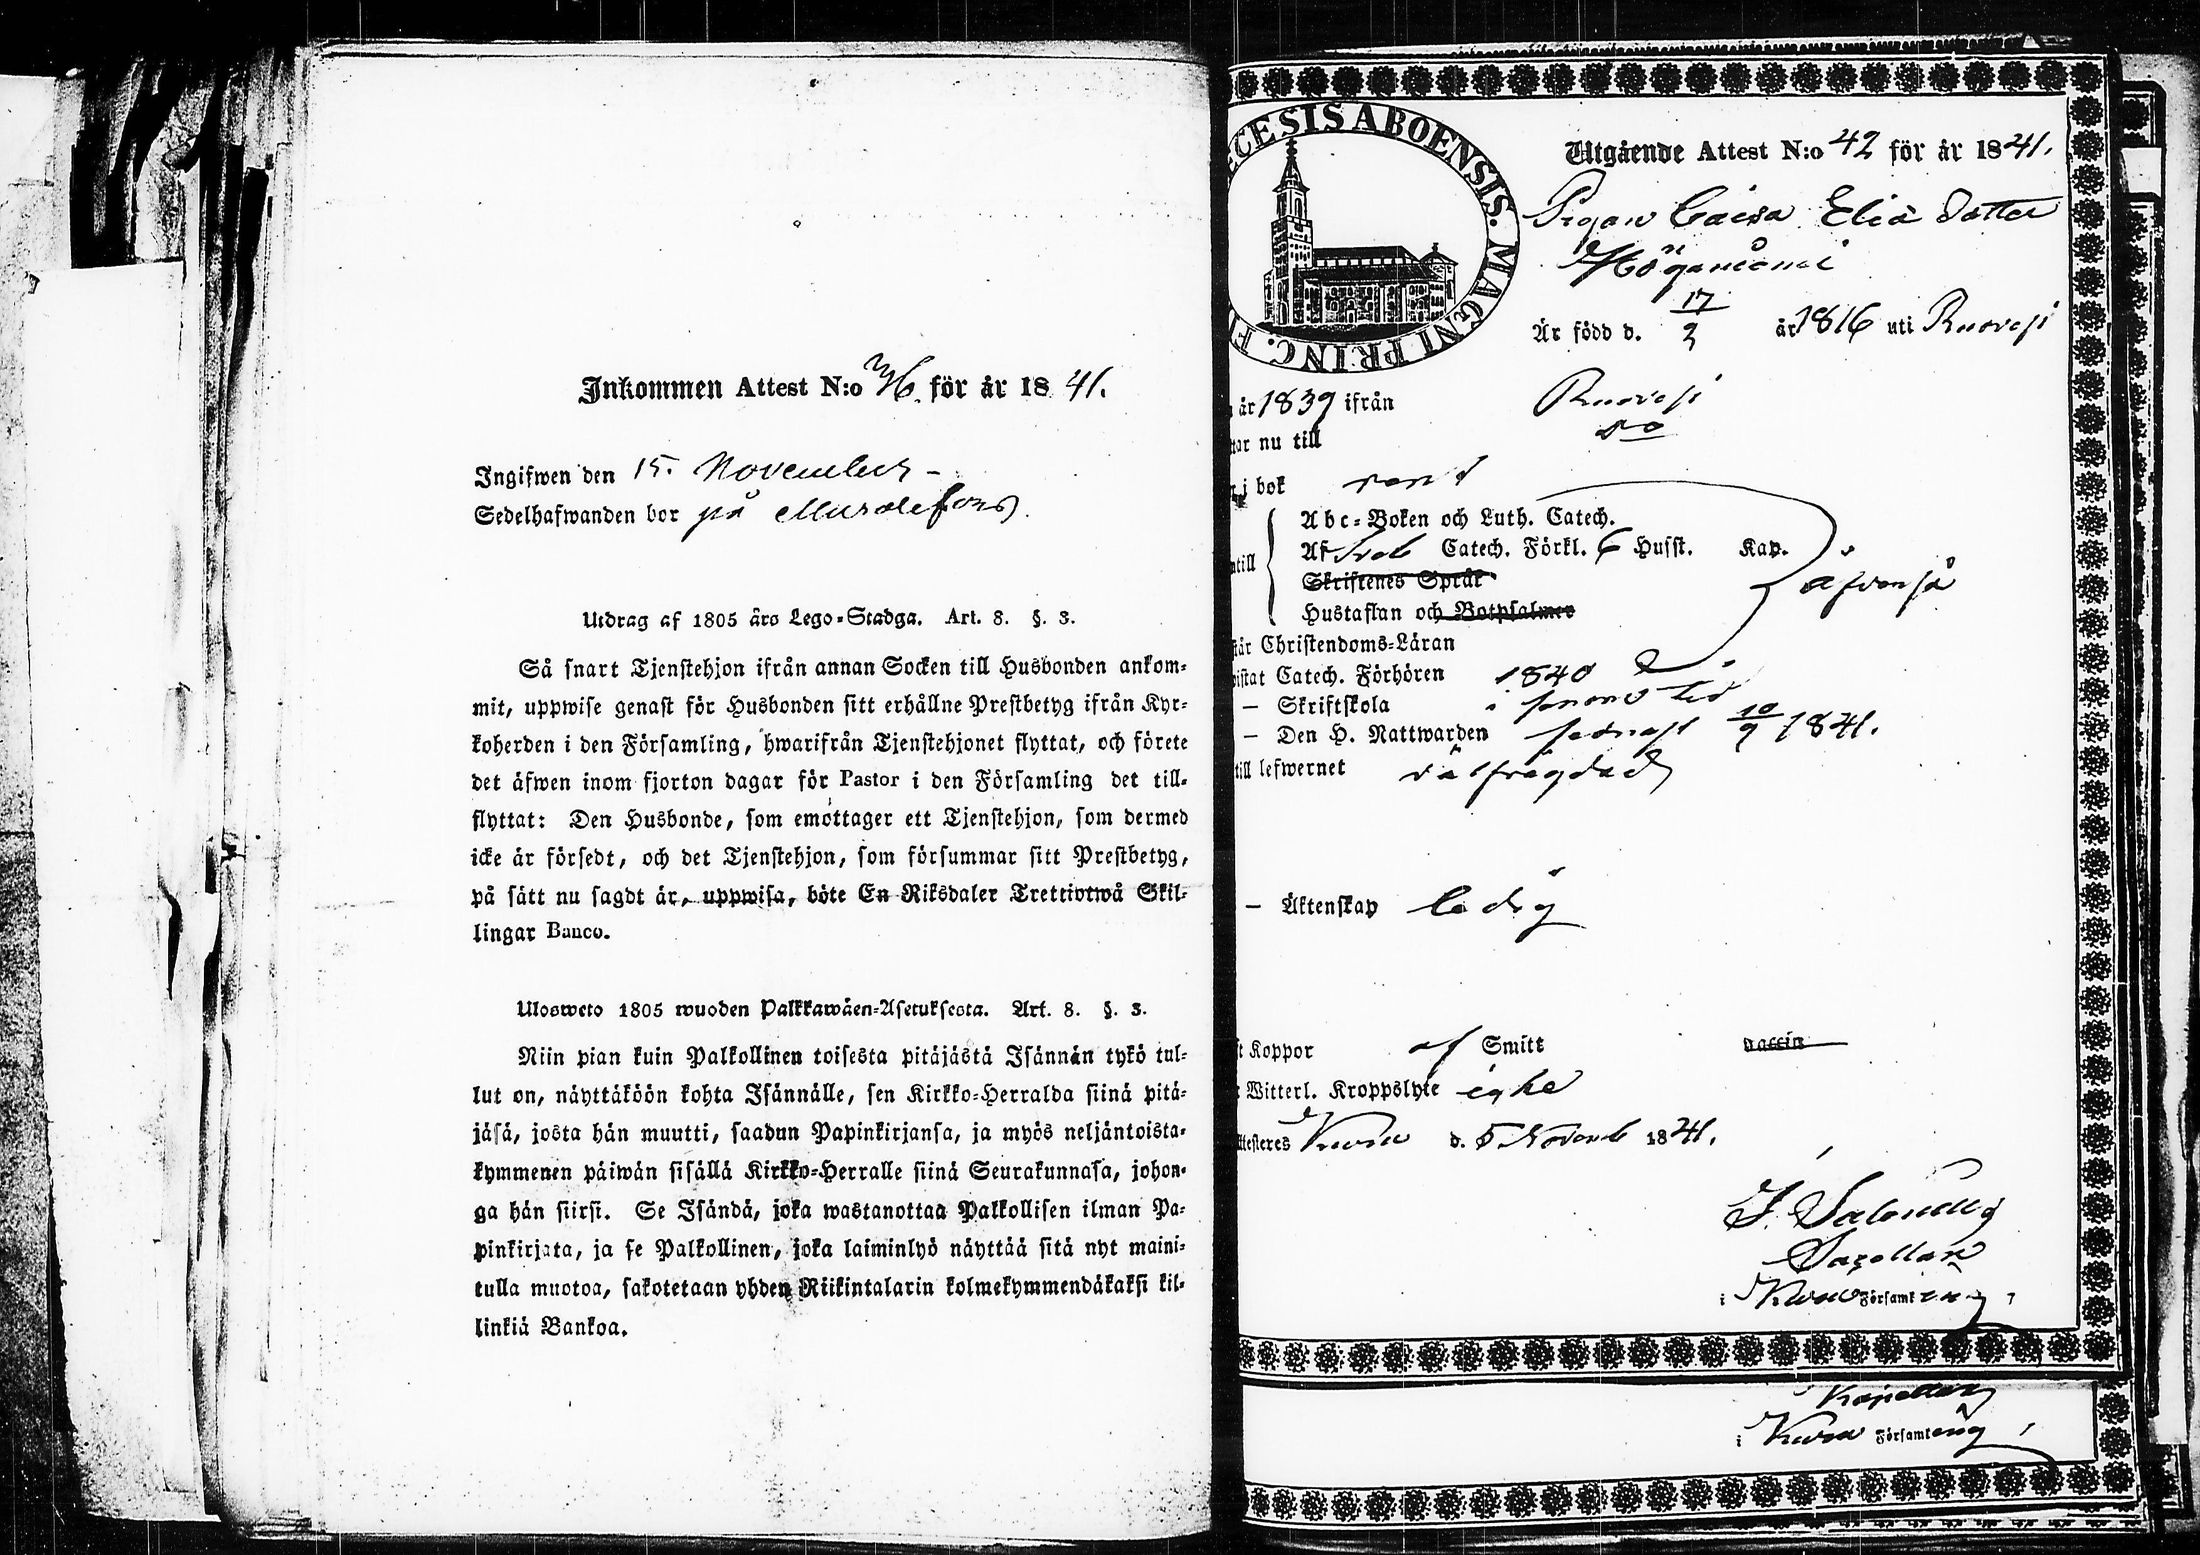 Inkommen Attest N:o 36. för år 1841.
Ingifwen den 15. November -
Sedelhafwanden bor på
Utdrag af 1805 års Lego-Stadga. Art. 8. §. 3.
Så snart Tjenstehjon ifrån annan Socken till Husbonden ankom-
mit, uppwise genast för Husbonden sitt erhållne Prestbetyg ifrån Kyr-
koherden i den Församling, hwarifrån Tjenstehjonet flyttat, och förete
det äfwen inom fjorton dagar för Pastor i den Församling det till-
flyttat: Den Husbonde, som emottager ett Tjenstehjon, som dermed
icke är försedt, och det Tjenstehjon, som försummar sitt Prestbetyg,
på sätt nu sagdt är, uppwisa, böte En Riksdaler Trettiotwå Skil-
lingar Banco.
Ulosweto 1805 wuoden Palkkawäen-Asetuksesta. Art. 8. §. 3.
Niin pian kuin Palkollinen toisesta pitäjästä Isännän tykö tul-
lut on, näyttäköön kohta Isännälle, sen Kirkko-Herralda siinä pitä-
jäsä, josta hän muutti, saadun Papinkirjansa, ja myös neljäntoista-
kymmenen päiwän sisällä Kirkko-Herralle siinä Seurakunnasa, johon-
ga hän siirsi. Se Isändä, joka wastanottaa Palkollisen ilman Pa-
pinkirjata, ja se Palkollinen, joka laiminlyö näyttää sitä nyt maini-
tulla muotoa, sakotetaan yhden Riikintalarin kolmekymmendäkaksi kil-
linkiä Bankoa.
ECESIS ABOENSIS. MAGNI PRINC. F
Utgående Attest N:o 42 för år 1841.
Pigan Caisa Elia Dotter
Är född d. 17/3 år 1816 uti Ruovesi
år 1839 ifrån Ruovesi
tar nu till do
i bok
Abc-Boken och Luth. Catech.
Af Sveb Catech. Förkl. 6 Husst. Kap.
Skriftenes Språk
Hustaflan och Botpsalmer
står Christendoms-Läran
wistat Catech. Förhören 1840
— Skriftskola i sinom tid
— Den H. Nattwarden sednast 10/9 1841.
till lefwernet välfrägdad
— Äktenskap ledig
t Koppor af Smitt vaccin
Witterl. Kroppslyte icke
Attesteres Kuru d. 5 Novemb 1841.
Sacellan
i Kuru Församling
Kapellan
i Kuru Församling